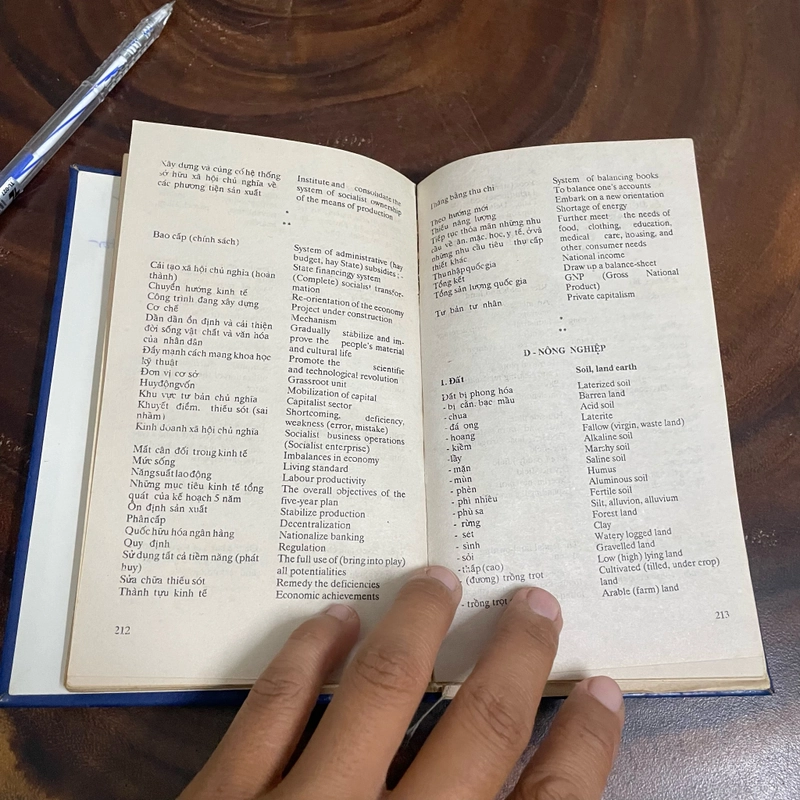 Xây dựng và củng cố hệ thống
sở hữu xã hội chủ nghĩa về
các phương tiện sản xuất
Institute and consolidate the
system of socialist ownership
of the means of production
*
**
Bao cấp (chính sách)
System of administrative (hay
budget, hay State) subsidies :
State financing system
Cải tạo xã hội chủ nghĩa (hoàn
thành)
(Complete) socialist transfor-
mation
Chuyển hướng kinh tế
Re-orientation of the economy
Công trình đang xây dựng
Project under construction
Cơ chế
Mechanism
Dần dần ổn định và cải thiện
đời sống vật chất và văn hóa
của nhân dân
Gradually stabilize and im-
prove the people's material
and cultural life
Đẩy mạnh cách mạng khoa học
kỹ thuật
Promote the scientific
and technological revolution
Đơn vị cơ sở
Grassroot unit
Huy động vốn
Mobilization of capital
Khu vực tư bản chủ nghĩa
Capitalist sector
Khuyết điểm, thiếu sót (sai
nhầm)
Shortcoming, deficiency,
weakness (error, mistake)
Kinh doanh xã hội chủ nghĩa
Socialist business operations
(Socialist enterprise)
Mất cân đối trong kinh tế
Imbalances in economy
Mức sống
Living standard
Năng suất lao động
Labour productivity
Những mục tiêu kinh tế tổng
quát của kế hoạch 5 năm
The overall objectives of the
five-year plan
Ổn định sản xuất
Stabilize production
Phân cấp
Decentralization
Quốc hữu hóa ngân hàng
Nationalize banking
Quy định
Regulation
Sử dụng tất cả tiềm năng (phát
huy)
The full use of (bring into play)
all potentialities
Sửa chữa thiếu sót
Remedy the deficiencies
Thành tựu kinh tế
Economic achievements
212
Thăng bằng thu chi
System of balancing books
To balance one's accounts
Theo hướng mới
Embark on a new orientation
Thiếu năng lượng
Shortage of energy
Tiếp tục thỏa mãn những nhu
cầu về ăn, mặc, học, y, tế, ở và
những nhu cầu tiêu thụ cấp
thiết khác
Further meet the needs of
food, clothing, education,
medical care, housing, and
other consumer needs
Thu nhập quốc gia
National income
Tổng kết
Draw up a balance-sheet
Tổng sản lượng quốc gia
GNP (Gross National
Product)
Tư bản tư nhân
Private capitalism
*
**
D - NÔNG NGHIỆP
1. Đất
Soil, land earth
Đất bị phong hóa
Laterized soil
- bị cằn, bạc mầu
Barrea land
- chua
Acid soil
- đá ong
Laterite
- hoang
Fallow (virgin, waste land)
- kiềm
Alkaline soil
- lầy
Marzhy soil
- mặn
Saline soil
- mùn
Humus
- phèn
Aluminous soil
- phì nhiêu
Fertile soil
- phù sa
Silt, alluvion, alluvium
- rừng
Forest land
- set
Clay
- sình
Watery logged land
- sỏi
Gravelled land
- thấp (cao)
Low (high) lying land
- (đương) trồng trọt
Cultivated (tilled, under crop)
land
- trồng trọt
Arable (farm) land
213